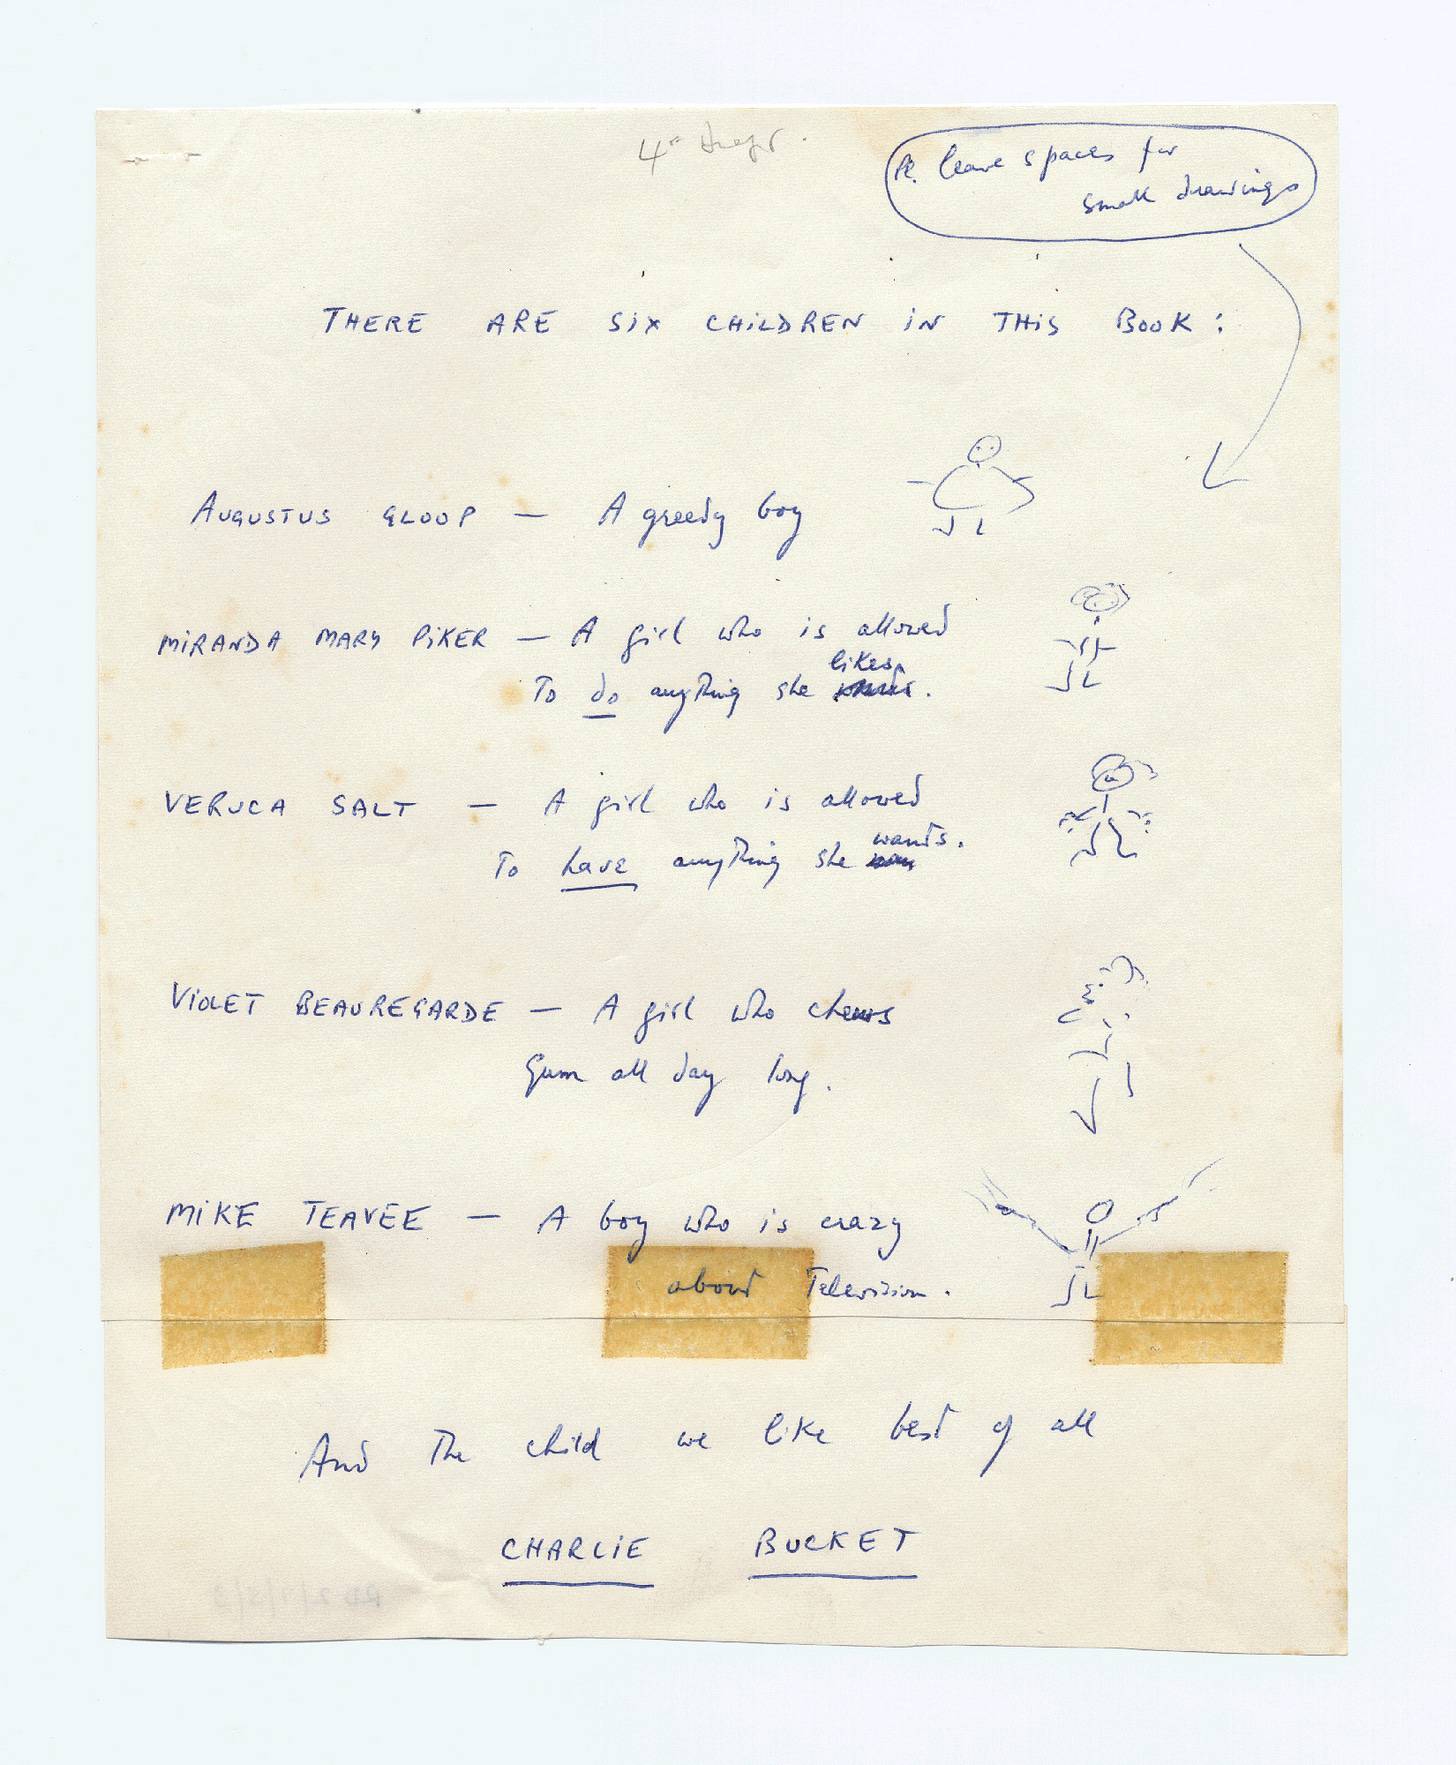 4th Draft.
Pl. leave spaces for
small drawings
THERE ARE SIX CHILDREN IN THIS BOOK:
AUGUSTUS GLOOP — A greedy boy
MIRANDA MARY PIKER — A girl who is allowed
likes
To do anything she wants.
VERUCA SALT — A girl who is allowed
wants.
To have anything she
VIOLET BEAUREGARDE — A girl who chews
Gum all day long.
MIKE TEAVEE — A boy who is crazy
about Television.
And The child we like best of all
CHARLIE BUCKET
RD 2/7/5/2